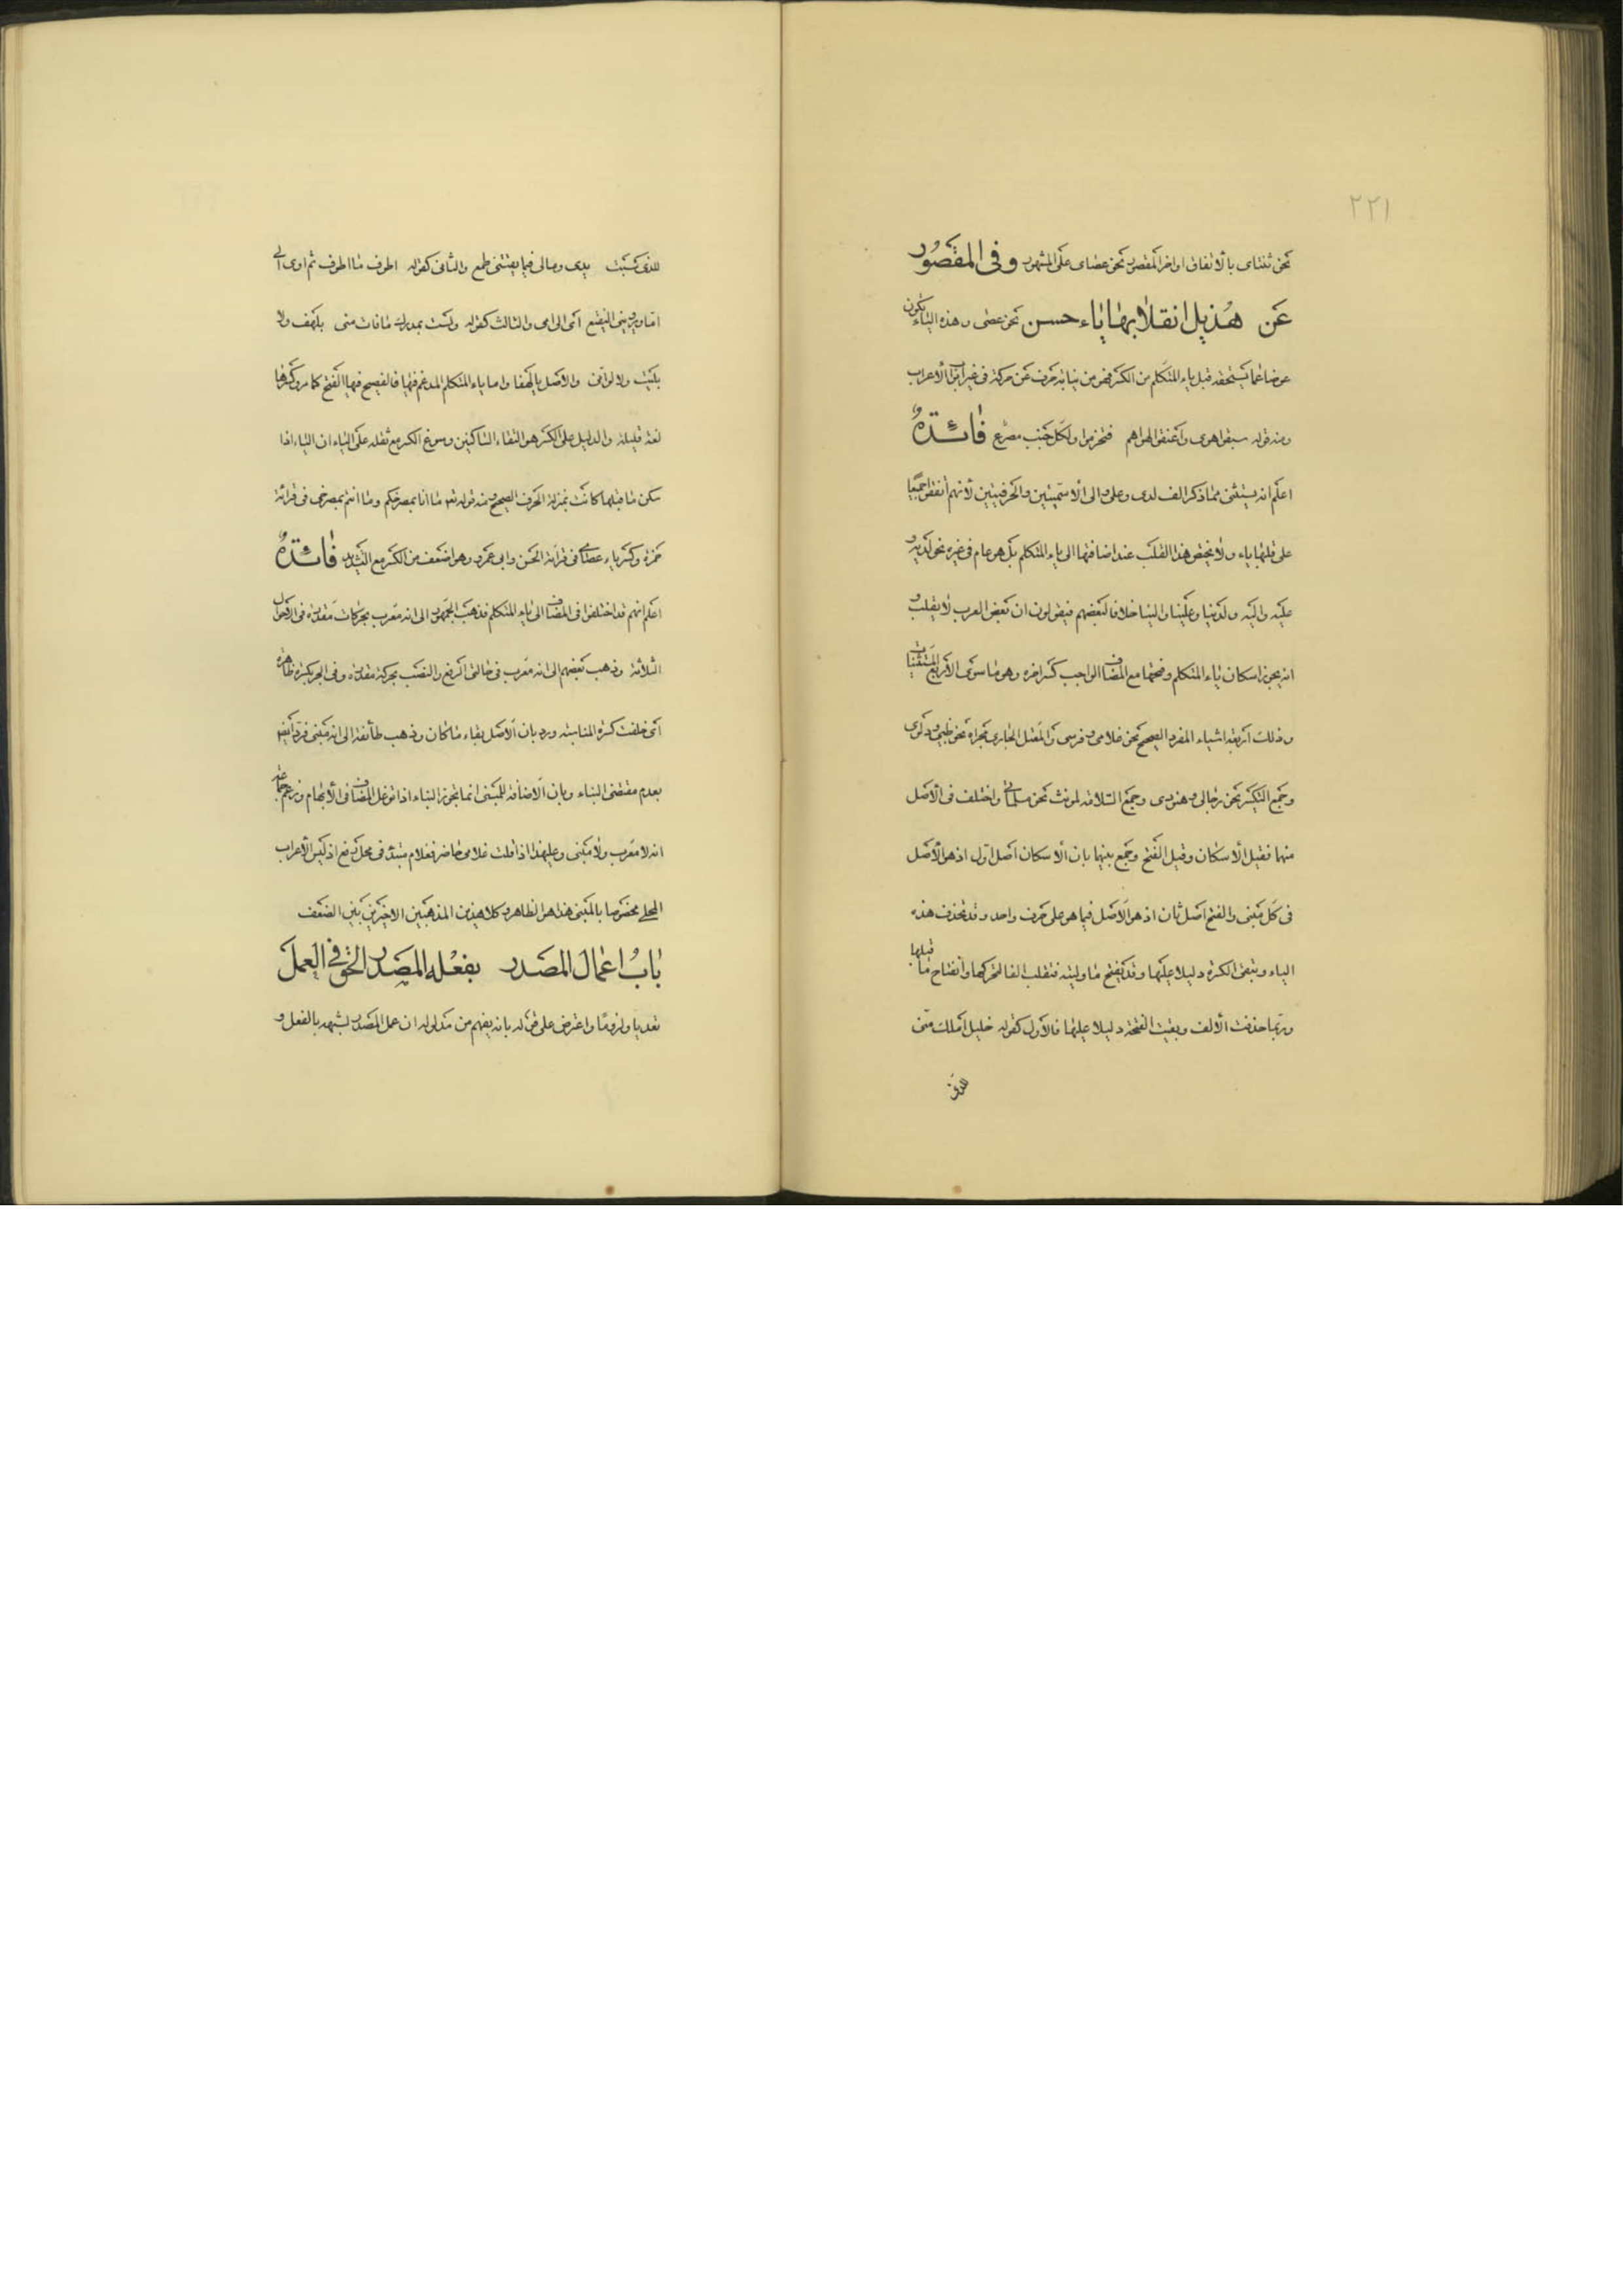 ٢٢١
نحو ثنتاى بالاتفاق او اخر المقصور نحو عصاى على المشهور وفى المقصور
عن هذيل انقلابها ياء حسن نحو عصى وهذه الياء تكون
عوضا عما يستحقه قبل ياء المتكلم من الكسر فهو من نيابة حرف عن حركة فى غير ابواب الأعراب
ومنه قوله سبقوا هوى واعنقوا لهواهم فتخرموا ولكل جنب مصرع فائدة
اعلم انه يستثنى مما ذكر الف لدى وعلى والى الاسميتين والحرفيتين لأنهم اتفقوا جميعا
على قلبها ياء ولا يختص هذا القلب عند اضافتها الى ياء المتكلم بل هو عام فى غيره نحو لديه و
عليه واليه ولدينا وعلينا والينا خلافا لبعضهم فيقولون ان بعض العرب لا يقلب و
انه يجوز اسكان ياء المتكلم وفتحها مع المضاف الواجب كسر اخره وهو ما سوى الأربع المستثنيات
وذلك اربعة اشياء المفرد الصحيح نحو غلامى وفرسى والمعتل الجارى مجراه نحو ظبيى ودلوى
وجمع التكسير نحو رجالى وهنودى وجمع السلامة لمونث نحو مسلماتى واختلف فى الأصل
منهما فقيل الأسكان وقيل الفتح وجمع بينهما بان الأسكان اصل اول اذ هو الأصل
فى كل مبنى والفتح اصل ثان اذ هو الأصل فيما هو على حرف واحد وقد تحذف هذه
الياء وتبقى الكسرة دليلا عليها وقد يفتح ما وليته فتقلب الفا لتحركها وانفتاح ما قبلها
وربما حذفت الألف وبقيت الفتحة دليلا عليها فالأول كقوله خليل املك منى
للذى
للذى كسبت يدى ومالى فيما يقتنى طمع والثانى كقوله اطوف ما اطوف ثم اوى الى
اما ويروينى النقيع اى الى امى والثالث كقوله ولست بمدرك ما فات منى بلهف ولا
بليت ولا لوانى والاصل يا لهفا واما ياء المتكلم المدغم فيها فالفصيح فيها الفتح كما مر وكسرها
لغة قليلة والدليل على الكسر هو التقاء الساكنين وسوغ الكسر مع ثقله على الياء ان الياء اذا
سكن ما قبلها كانت بمنزلة الحرف الصحيح منه قوله تعه ما انا بمصرخكم وما انتم بمصرخى فى قرائة
حمزة وكسر ياء عصاى فى قرائة الحسن وابى عمرو وهو اضعف من الكسر مع التشديد فائدة
اعلم انهم قد اختلفوا فى المضاف الى ياء المتكلم فذهب الجمهور الى انه معرب بحركات مقدرة فى الأحوال
الثلاثة وذهب بعضهم الى انه معرب فى حالتى الرفع والنصب بحركة مقدرة وفى الجر بكسرة ظاهرة
اى خلفت كسرة المناسبة ورد بان الأصل بقاء ما كان وذهب طائفة الى انه مبنى فرد ايضا
بعدم مقتضى البناء وبان الاضافة للمبنى انما يجوز البناء اذا توغل المضاف فى الأبهام وزعم جماعة
انه لا معرب ولا مبنى وعليهذا اذا قلت غلامى حاضر فغلام مبتدء فى محل رفع اذ ليس الأعراب
المحلى مخصوصا بالمبنى هذا هو الظاهر وكلا هذين المذهبين الاخيرين بين الضعف
باب اعمال المصدر بفعله المصدر الحق فى العمل
تعديا ولزوما واعترض على قوله بانه يفهم من مدلوله ان عمل المصدر لشبهه بالفعل و